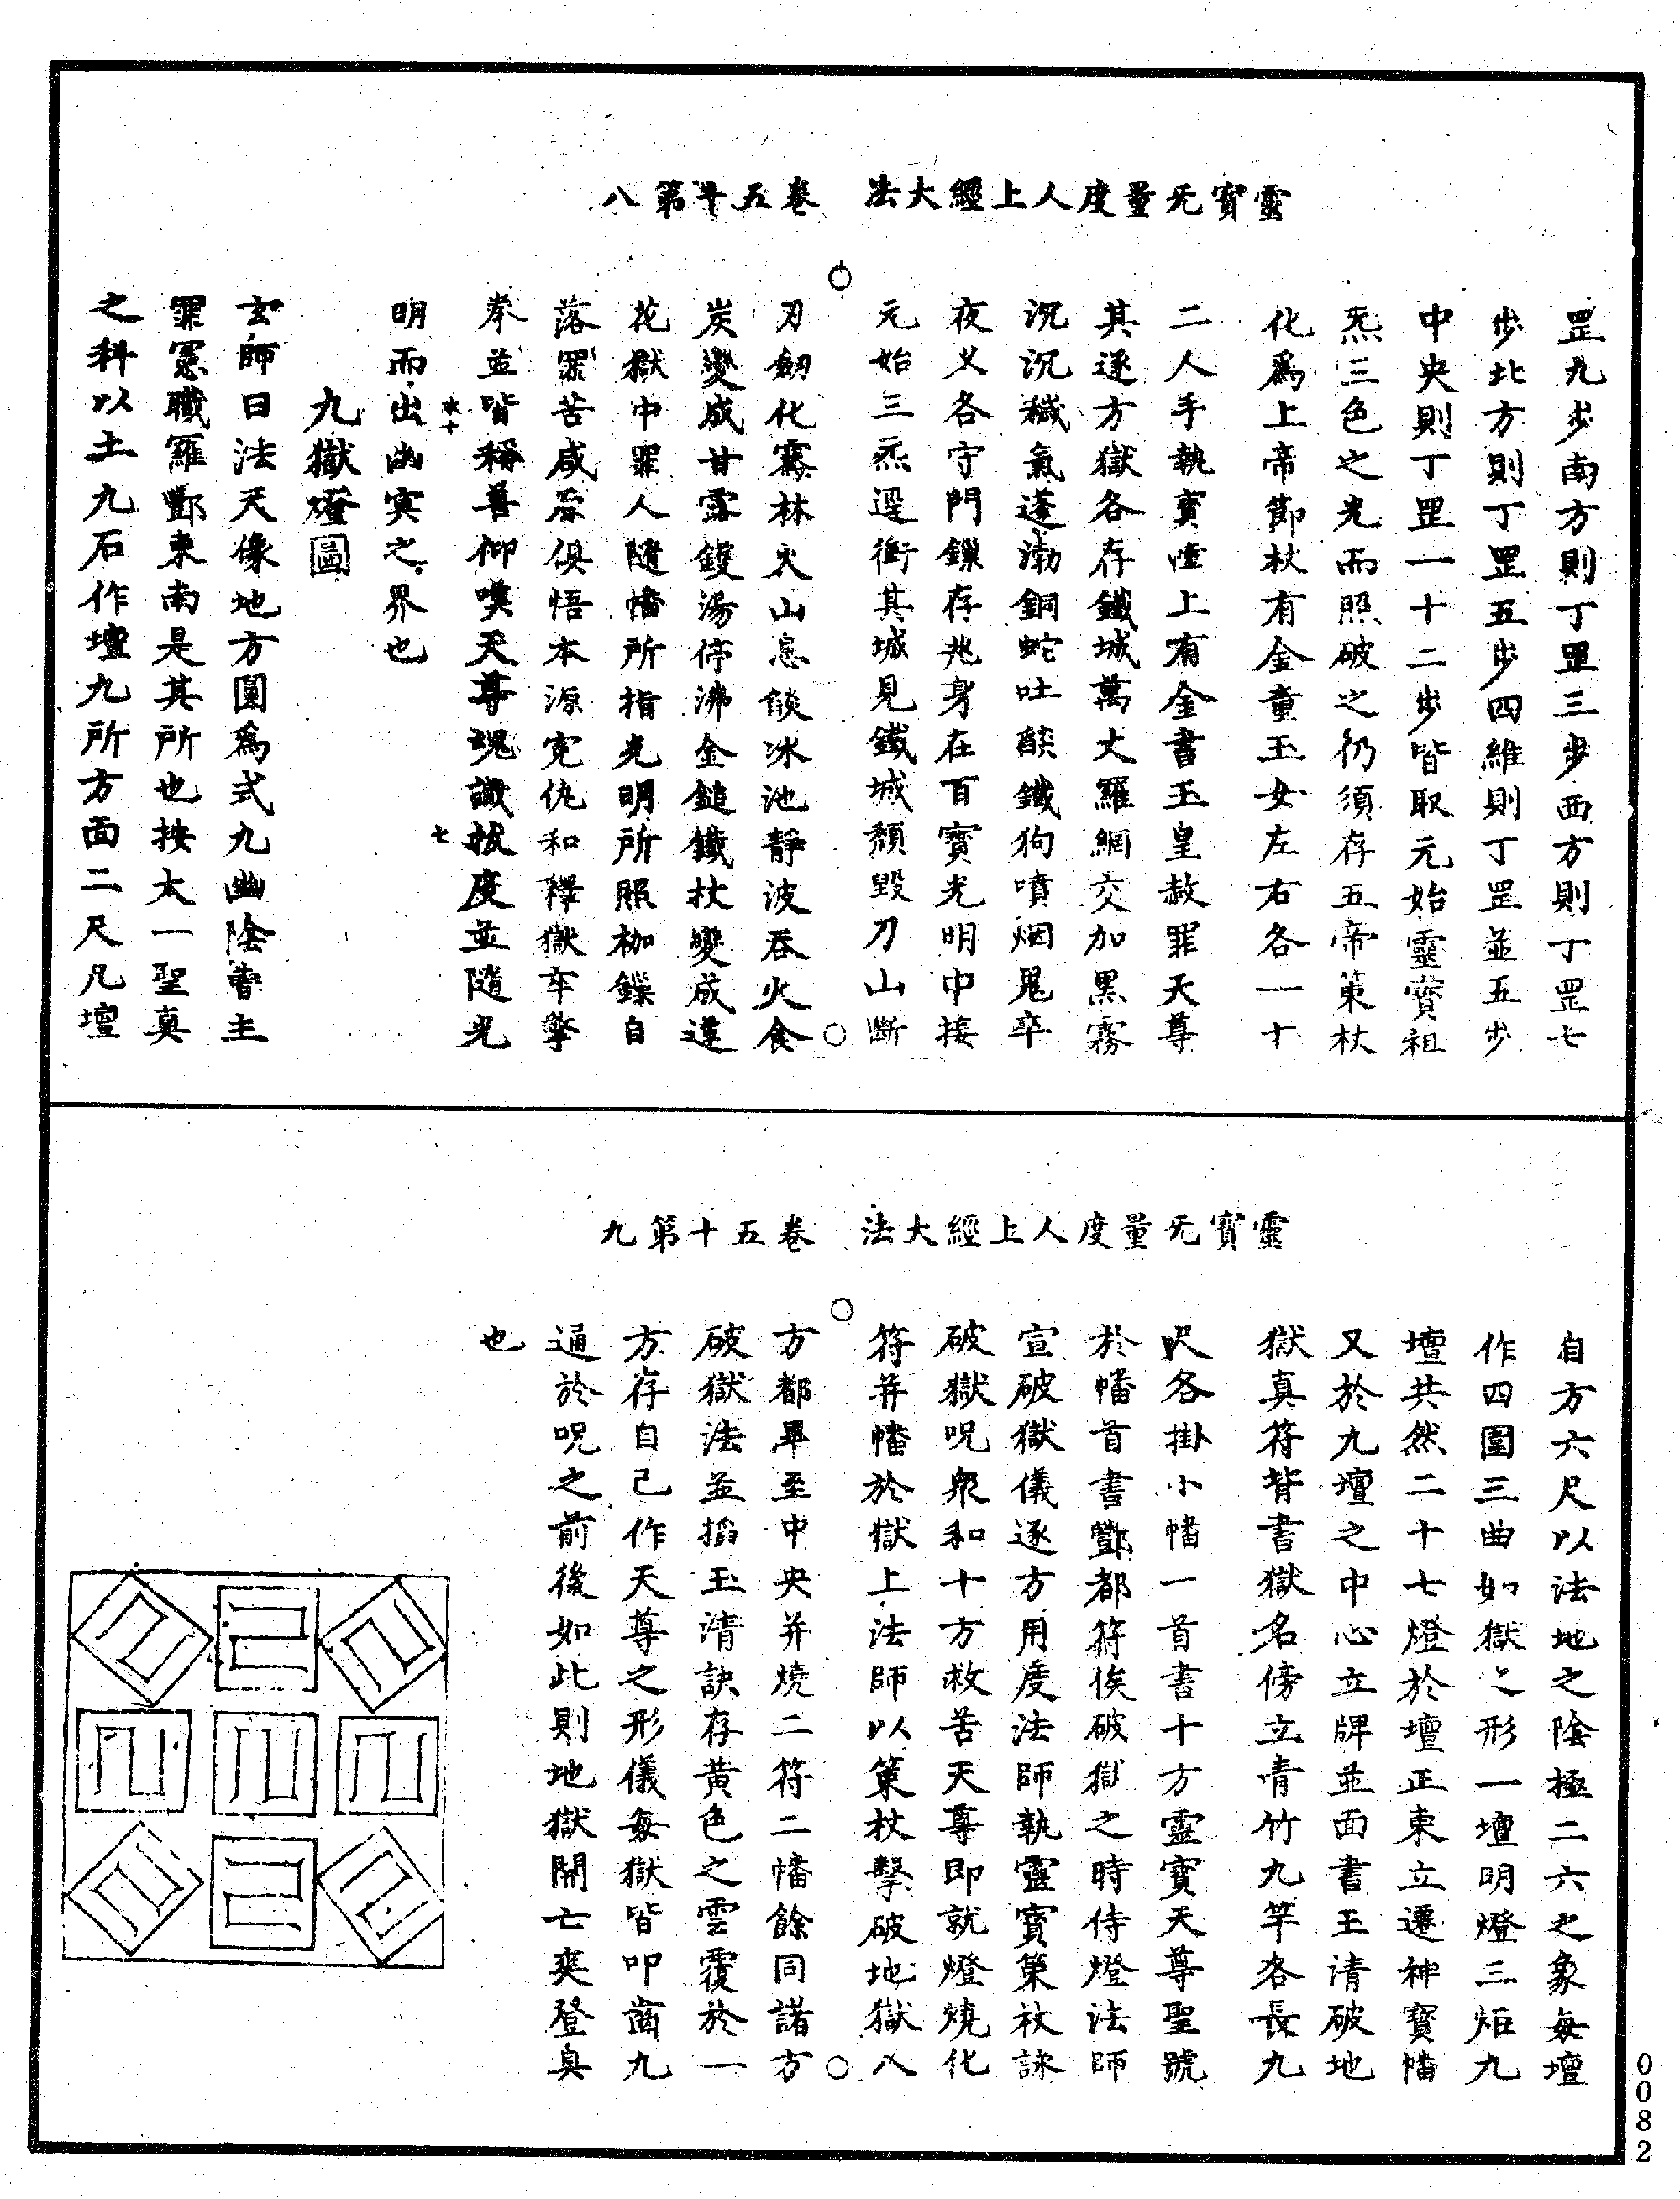 靈寳无量度人上經大法　卷五十第八
罡九步南方則丁罡三步西方則丁罡七
步北方則丁罡五步四維則丁罡並五步
中央則丁罡一十二步皆取元始靈寳祖
炁三色之光而照破之仍須存五帝策杖
化爲上帝節杖有金童玉女左右各一十
二人手執寳幢上有金書玉皇赦罪天尊
其逐方獄各存鐵城萬丈羅網交加黒霧
沉沉穢氣蓬渤銅蛇吐䤋鐵狗噴烟鬼卒
夜叉各守門鏁存兆身在百寳光明中接
元始三炁逕衝其城見鐵城頹毀刀山斷
刃劒化騫林火山息燄冰池静波吞火食
炭變成甘露鑊湯停沸金鎚鐵杖變成蓮
花獄中罪人隨幡所指光明所照枷鏁自
落罪苦咸原俱悟本源寃仇和釋獄卒擎
拳並皆稱善仰嘆天尊魂識拔度並隨光
明而出幽冥之界也
九獄燈圖
玄師曰法天像地方圓爲式九幽陰曹主
罪憲職羅酆東南是其所也按太一聖真
之科以土九石作壇九所方面二尺凡壇
靈寳无量度人上經大法　卷五十第九
自方六尺以法地之陰極二六之象每壇
作四圍三曲如獄之形一壇明燈三炬九
壇共然二十七燈於壇正東立遷神寳幡
又於九壇之中心立牌並面書玉清破地
獄真符背書獄名傍立青竹九竿各長九
尺各掛小幡一首書十方靈寳天尊聖號
於幡首書酆都符俟破獄之時侍燈法師
宣破獄儀逐方用度法師執靈寳策杖誦
破獄呪衆和十方救苦天尊即就燈燒化
符并幡於獄上法師以策杖擊破地獄八
方都畢至中央并燒二符二幡餘同諸方
破獄法並掐玉清訣存黄色之雲覆於一
方存自己作天尊之形儀每獄皆叩齒九
通於呪之前後如此則地獄開亡爽登真
也
0082